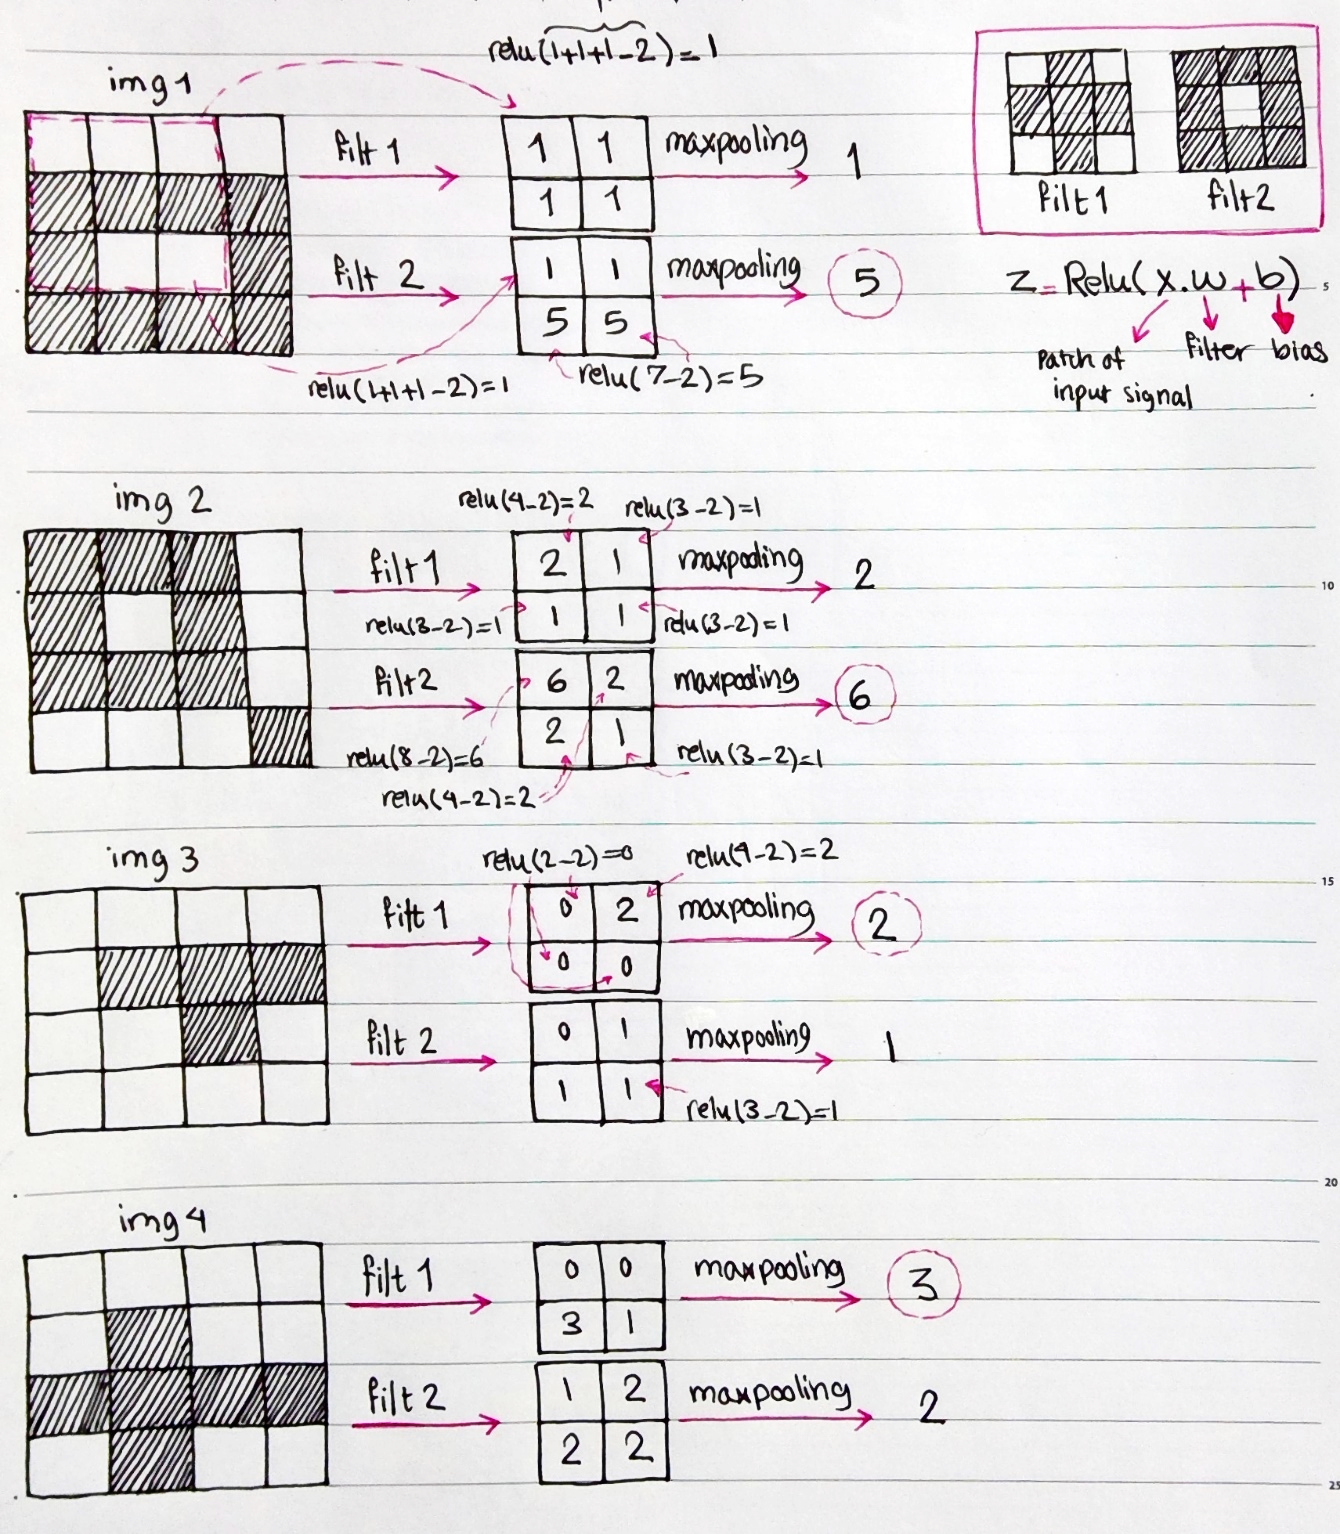 relu(1+1+1-2)=1
img 1
filt 1
1 1
1 1
maxpooling
1
filt 2
1 1
5 5
maxpooling
5
relu(1+1+1-2)=1
relu(7-2)=5
filt1
filt2
z=Relu(x.w+b)
Patch of
input signal
filter
bias
5
img 2
relu(4-2)=2
relu(3-2)=1
filt1
2 1
1 1
maxpooling
2
relu(3-2)=1
relu(3-2)=1
10
filt2
6 2
2 1
maxpooling
6
relu(8-2)=6
relu(3-2)=1
relu(4-2)=2
img 3
relu(2-2)=0
relu(4-2)=2
15
filt 1
0 2
0 0
maxpooling
2
filt 2
0 1
1 1
maxpooling
1
relu(3-2)=1
20
img 4
filt 1
0 0
3 1
maxpooling
3
filt 2
1 2
2 2
maxpooling
2
25